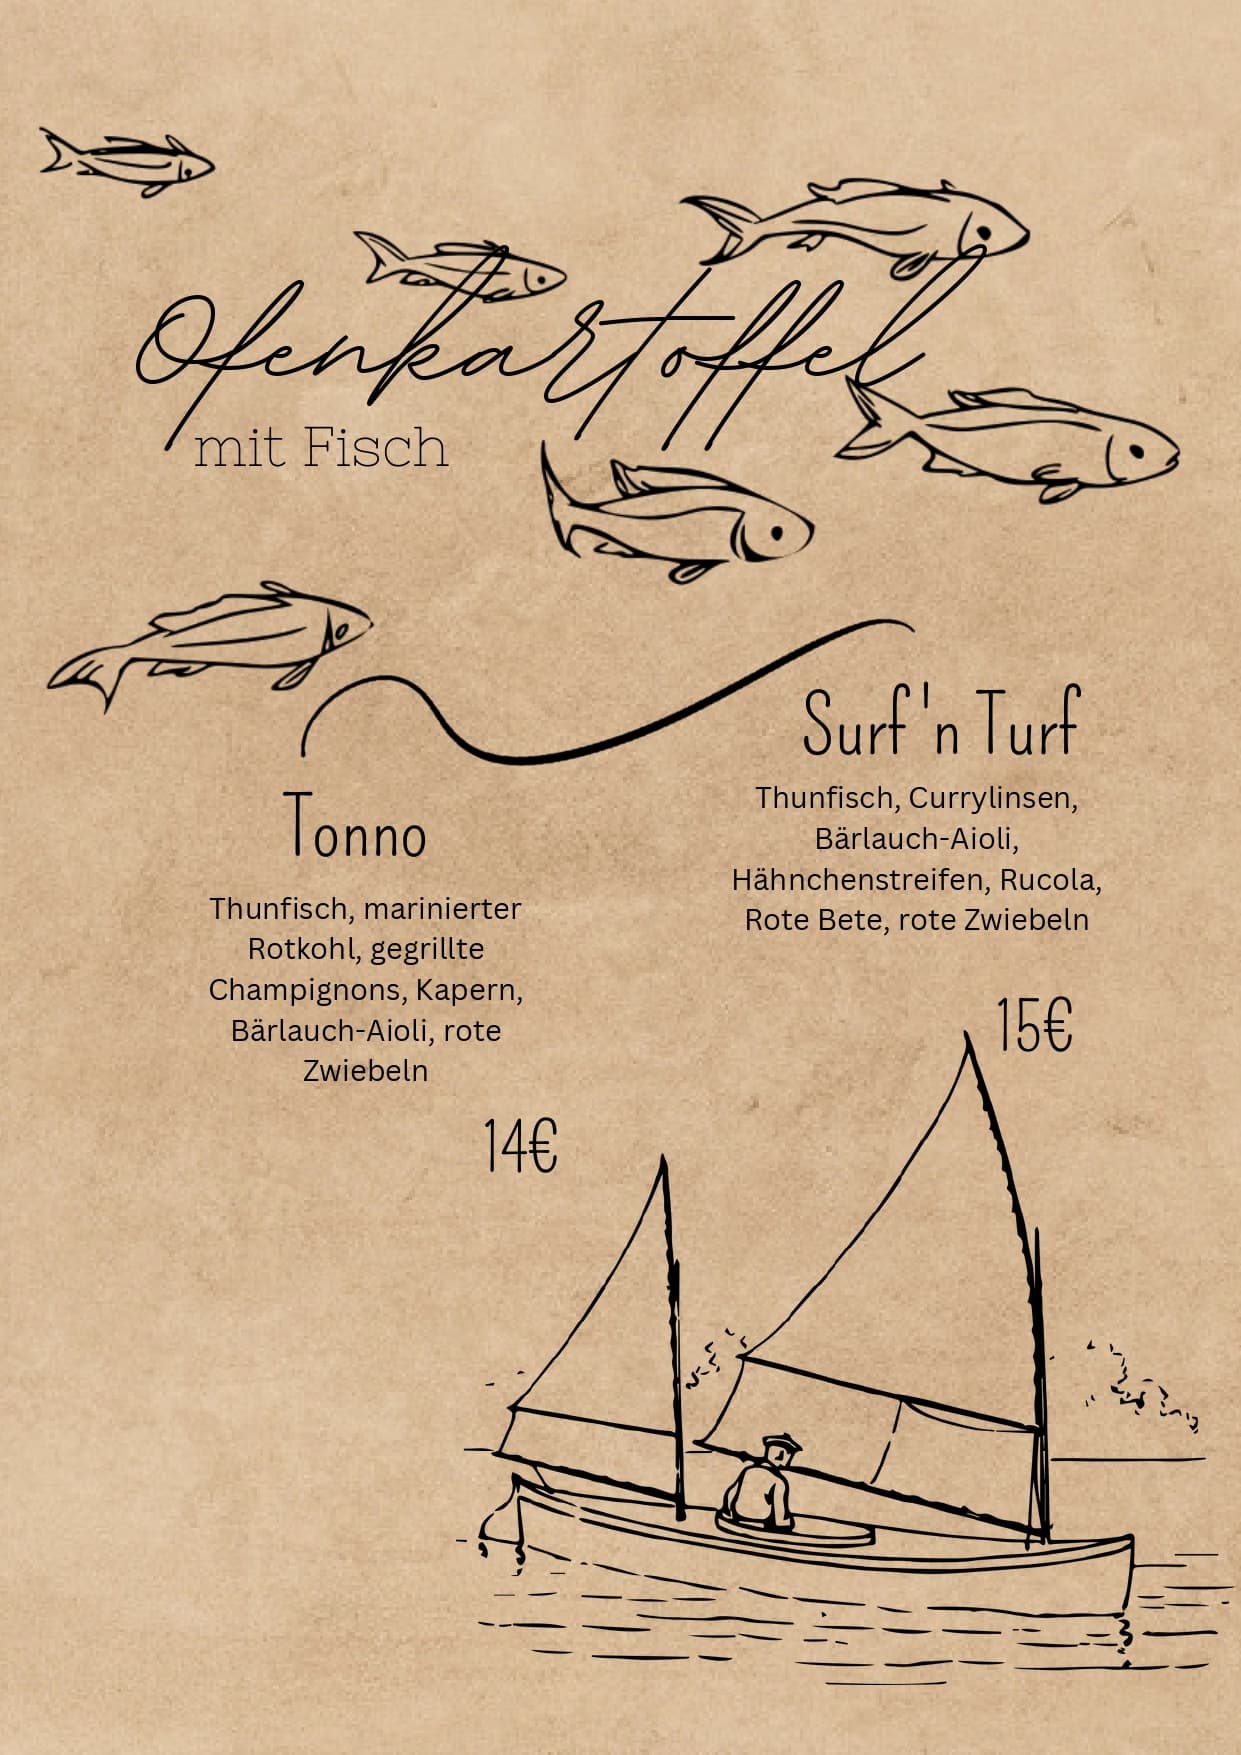 Ofenkartoffel
mit Fisch
Tonno
Thunfisch, marinierter
Rotkohl, gegrillte
Champignons, Kapern,
Bärlauch-Aioli, rote
Zwiebeln
14€
Surf 'n Turf
Thunfisch, Currylinsen,
Bärlauch-Aioli,
Hähnchenstreifen, Rucola,
Rote Bete, rote Zwiebeln
15€